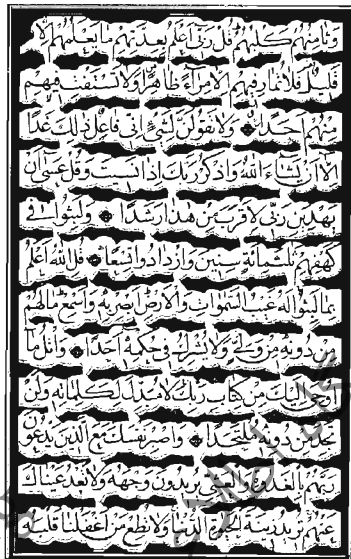 وثامنهم كلبهم قل ربي اعلم بعدتهم ما يعلمهم الا
قليل فلا تمار فيهم الا مرآء ظاهرا ولا تستفت فيهم
منهم احدا ولا تقولن لشيء اني فاعل ذلك غدا
الا ان يشاء الله واذكر ربك اذا نسيت وقل عسى ان
يهدين ربي لاقرب من هذا رشدا ولبثوا في
كهفهم ثلثمائة سنين وازدادوا تسعا قل الله اعلم
بما لبثوا له غيب السموات والارض ابصر به واسمع مالهم
من دونه من ولي ولا يشرك في حكمه احدا واتل ما
اوحي اليك من كتاب ربك لا مبدل لكلماته ولن
تجد من دونه ملتحدا واصبر نفسك مع الذين يدعون
ربهم بالغدوة والعشي يريدون وجهه ولا تعد عيناك
عنهم تريد زينة الحيوة الدنيا ولا تطع من اغفلنا قلبه